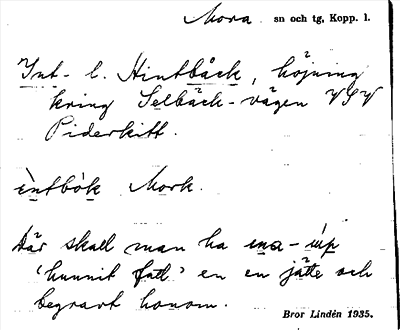 Mora sn och tg, Kopp. l.
Int- l. Hintbåck, höjning
kring Selbäck-vägen VSV
Piderkitt.
èntbòk Mork.
Där skall man ha ena-úp
'hunnit fatt' en en jätte och
begravt honom.
Bror Lindén 1935.